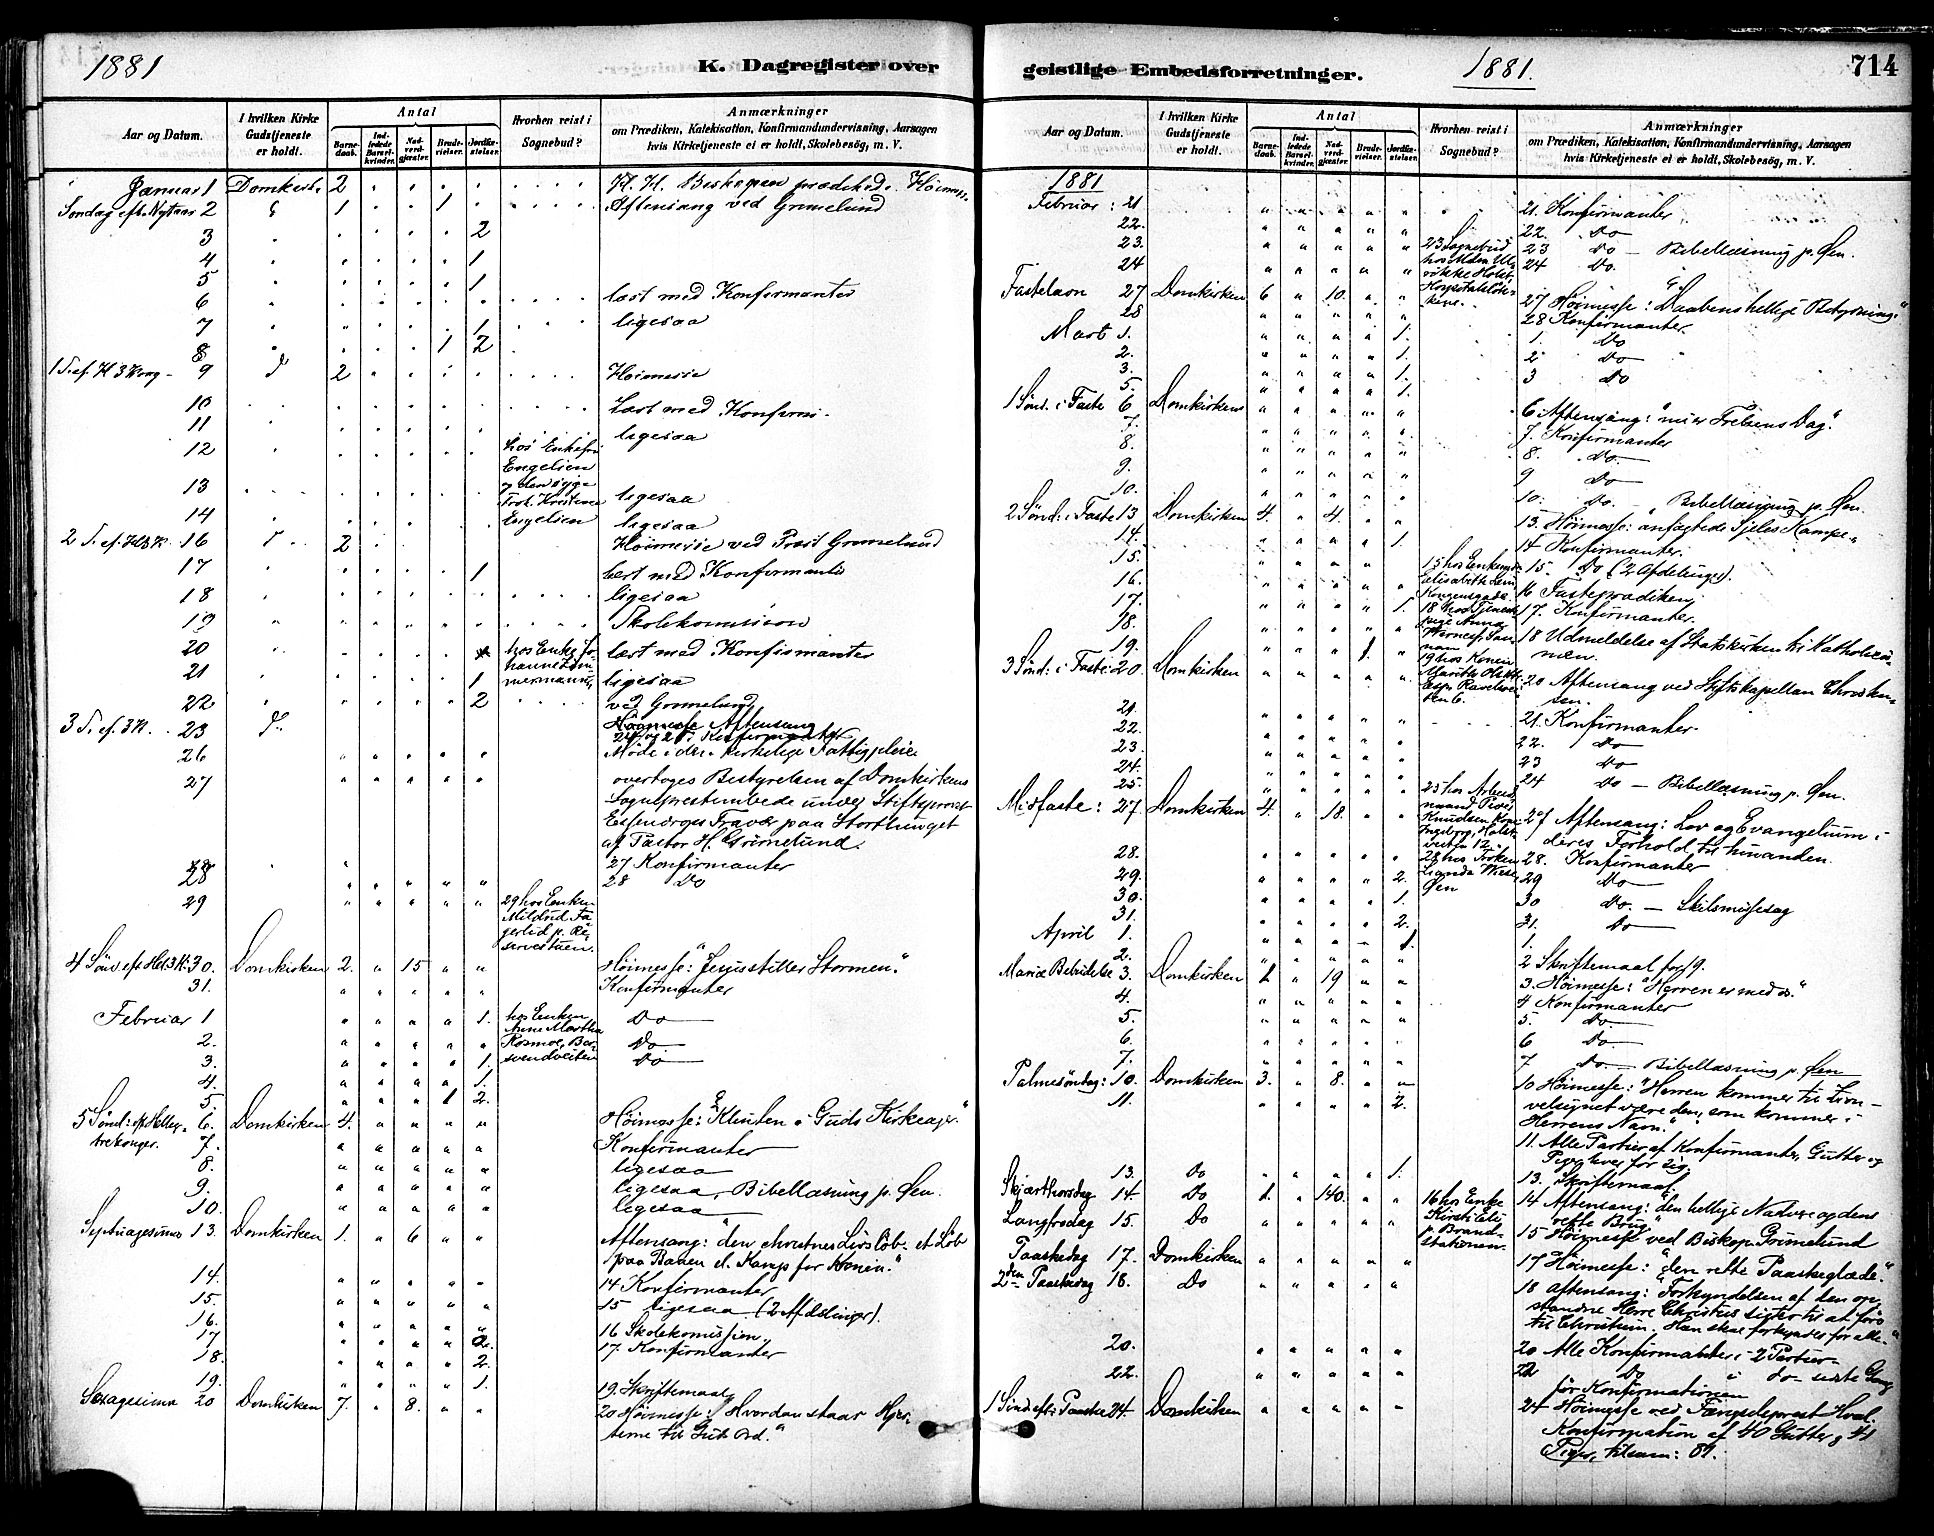 1881
K. Dagregister over
Aar og Datum.
I hvilken Kirke Gudstjeneste er holdt.
Antal
Barnedaab.
Indledede Barselkvinder.
Nadverdgjester.
Brudevielser.
Jordfæstelser.
Hvorhen reist i Sognebud?
Anmærkninger
om Prædiken, Katekisation, Konfirmandundervisning, Aarsagen
hvis Kirketjeneste ei er holdt, Skolebesög, m. V.
Januar 1 Domkirk. 2 H. H. Biskopen prædikede. Høimes.
Søndag eft. Nytaar 2 1 1 Aftensang ved Grimelund
3 2
4 1
5 1
6 læst med Konfirmanter
7 1 ligesaa
8 1 2
1 S. ef. H 3 Kong 9 2 Høimesse
10 Læst med Konfirm.
11 ligesaa
12 hos Enkefru Engelien
13 og den syge Frøk. Kristine ligesaa
14 Engelien ligesaa
2 S. ef. H3K. 16 2 Høimesse ved Provst Grimelund
17 1 læst med Konfirmanter
18 ligesaa
19 Skolekomission
20 hos Enke Jo- læst med Konfirmanter
21 1 ligesaa
22 2 ved Grimelund
3 S. ef. 3K. 23 Høimesse Aftensang
24 og 25. Konfirmanter
26 Møde i den kirkelige Fattigpleie
27 overtoges Bestyrelsen af Domkirkens
Sogneprestembede under Stiftsprovst
Essendrops Fravær paa Storthinget
af Pastor H. Grimelund.
27 Konfirmanter
28 28 Do
29 29 hos Enken Mildrid Fagerlid p. Reservestuen.
4 Sønd eft. Hel. 3 K. 30. Domkirken 2. 15 Høimesse: "Jesus stiller Stormen."
31. Konfirmanter
Februar 1 1. hos Enken Anne Martha Do
2. Rosmoe, Ber- Do
3. 1. svendveiten Do
4. 1.
5 1 2.
5 Sønd: ef. Hellig- 6. Domkirken 4. Høimesse: "Klinten i Guds Kirkeager."
trekonger. 7. Konfirmanter
8. ligesaa
9. ligesaa, Bibellæsning p. Øen.
10. ligesaa
Septuagesima 13. Domkirken 1. 6 Aftensang: "den christnes Livsløb et Løb
paa Banen el. Kamp for Kronen."
14. 14 Konfirmanter
15. 15 ligesaa (2 Afdelinger).
16. 16 Skolekomission.
17 2. 17. Konfirmanter
18. 2.
19. 1. 19. Skriftemaal
Sexagesima 20 Domkirken 7. 8. 20 Høimesse: "Hvordan staar Hjer-
terne til Guds Ord."
geistlige Embedsforretninger.
1881.
714
Aar og Datum.
I hvilken Kirke Gudstjeneste er holdt.
Antal
Barnedaab.
Indledede Barselkvinder.
Nadverdgjester.
Brudevielser.
Jordfæstelser.
Hvorhen reist i Sognebud?
Anmærkninger
om Prædiken, Katekisation, Konfirmandundervisning, Aarsagen
hvis Kirketjeneste ei er holdt, Skolebesög, m. V.
1881
Februar: 21 21. Konfirmanter
22. 22. Do
23. 23 Sognebud 23 Do — Bibellæsning p. Øen.
24 24 Do.
Fastelavn 27 Domkirken 6 10. 27 Høimesse: "Daabens hellige Betydning."
28 28 Konfirmanter.
Mart 1. 1. 1. Do
2. 1. 2 Do
3. 1. 3 Do
5. 1.
1 Sønd. i Faste 6 Domkirken 6 Aftensang: "nu er Frelsens Dag."
7. 7. Konfirmanter
8. 8. Do.
9. 9 Do
10. 10. Do. Bibellæsning p. Øen.
2 Sønd: i Faste 13 Domkirken 4. 4. 13. Høimesse: anfægtede Sjeles Kampe.
14. 1. 14 Konfirmanter.
15. 15. Do (2 Afdelinger).
16. 16 Fasteprædiken
17. 1. 17. Konfirmanter.
18. 18 Udmeldelse af Statskirken til Katholicis-
men.
19. 1.
3 Sønd: i Faste 20. Domkirken 20 Aftensang ved Stiftskapellan Christen-
sen.
21. 21. Konfirmanter.
22. 22. Do
23. 23 Do
24. 24 Do — Bibellæsning p. Øen.
25.
Midfaste: 27. Domkirken 4. 18. 27 Aftensang: Lov og Evangelium i
deres Forhold til hinanden.
28. 28. Konfirmanter
29. 2. Øen 29 Do
30. 1. 30 Do. — Skilsmissesag
31. 2. 31. Do
April 1. 1. 1.
2. 2 Skriftemaal for 19.
Mariæ Bebudelse 3. Domkirken 1. 19 3. Høimesse: "Herren er med os."
4. 4 Konfirmanter
5. 5. Do.
6. 6 Do.
7. 7 Do — Bibellæsning p. Øen
Palmesøndag: 10. Domkirken 3. 8. 10 Høimesse: "Herren kommer til Zion —
velsignet være den, som kommer i
Herrens Navn."
11. 2. 11. Alle Partier af Konfirmanter, Gutter og
Piger hver for sig.
13. Do 1. 13. Skriftemaal
Skjærthorsdag 14. Do 1. 140. 16 hos Enke 14 Aftensang: "den hellige Nadvere og dens
rette Brug."
Langfredag 15. Do 15 Høimesse ved Biskop Grimelund
Paaskedag 17. Domkirken 17 Høimesse: "den rette Paaskeglæde."
2den Paaskedag 18. Do 18 Aftensang: "Forkyndelsen af den op-
standne Herre Christus sigter til at føre
til Christum. Han skal forkyndes for alle."
20. 20 Alle Konfirmanter i 2 Partier
22. 22 Do Do sidste Gang
før Konfirmationen
1 Sønd eft. Paaske 24. Domkirken 24 Høimesse ved Fængselsprest Hval.
Konfirmation af 40 Gutter og 41
Piger, tilsam: 81.